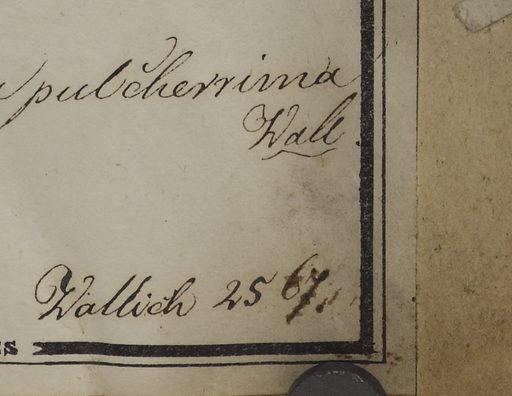 pulcherrima
Wall.
Wallich 25 67